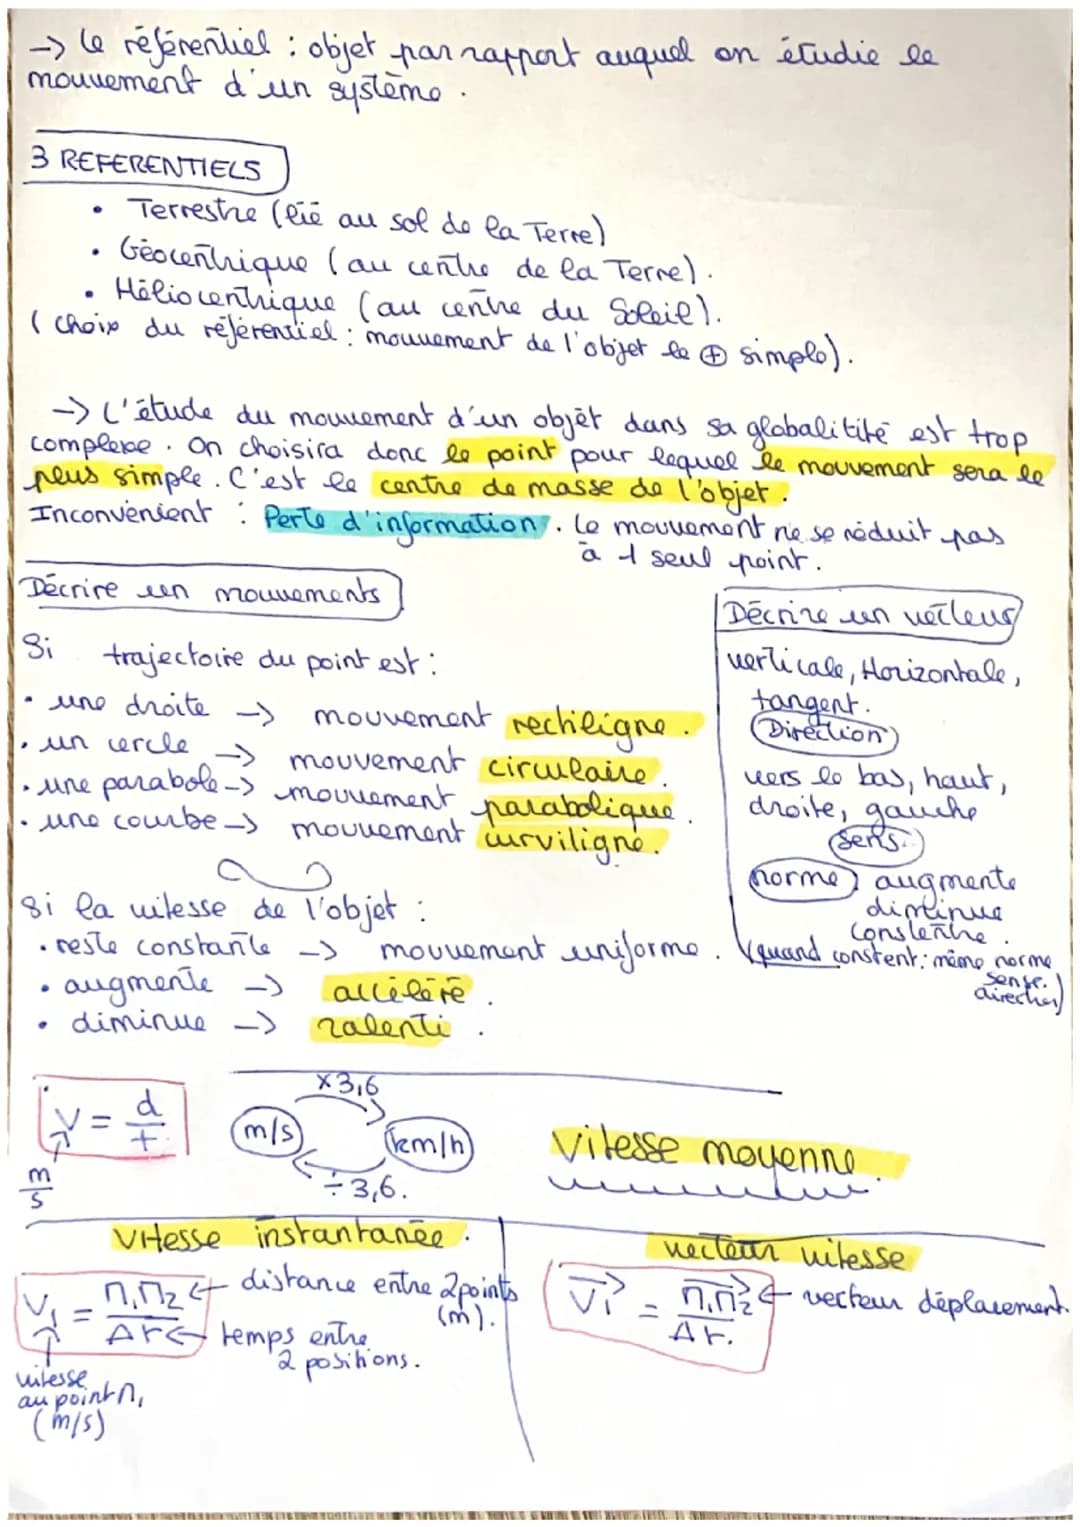 -> Le référentiel : objet par rapport auquel on étudie le
mouvement d'un système.
3 REFERENTIELS
• Terrestre (lié au sol de la Terre)
• Géocentrique (au centre de la Terre).
• Héliocentrique (au centre du Soleil).
(choix du référentiel : mouvement de l'objet le ⊕ simple).
-> L'étude du mouvement d'un objet dans sa globalitité est trop
complexe. On choisira donc le point pour lequel le mouvement sera le
plus simple. C'est le centre de masse de l'objet.
Inconvénient : Perte d'information. Le mouvement ne se réduit pas
à 1 seul point.
Décrire un mouvements
Si trajectoire du point est :
• une droite -> mouvement rectiligne.
• un cercle -> mouvement circulaire.
• une parabole -> mouvement parabolique.
• une courbe -> mouvement curviligne.
Si la vitesse de l'objet :
• reste constante -> mouvement uniforme.
• augmente -> accéléré.
• diminue -> ralenti.
Décrire un vecteur
verticale, Horizontale,
tangent.
Direction
vers le bas, haut,
droite, gauche
Sens.
norme augmente
diminue
constente.
(quand constent : même norme
sens.
direction)
V = d/t
m/s
x3,6
m/s
km/h
÷3,6.
Vitesse moyenne.
Vitesse instantanée.
V₁ = M₁M₂/Δt
<- distance entre 2 points
(m).
<- temps entre
2 positions.
vitesse
au point M₁
(m/s)
vecteur vitesse
V₁→ = M₁M₂→/Δt.
<- vecteur déplacement.